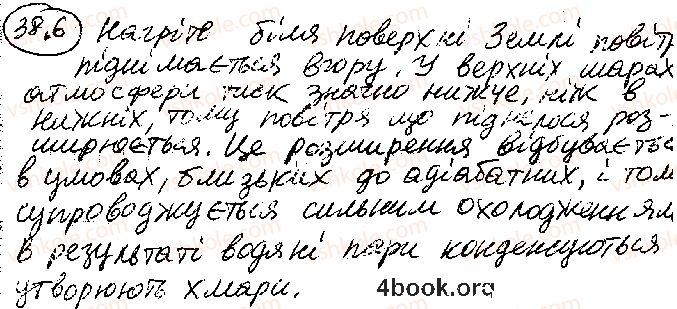 38.6 Нагріте біля поверхні Землі повітр
піднімається вгору. У верхніх шарах
атмосфери тиск значно нижче, ніж в
нижніх, тому повітря що піднялося роз-
ширюється. Це розширення відбуваєть
в умовах, близьких до адіабатних, і том
супроводжується сильним охолодженням
в результаті водяні пари конденсуються
утворюють хмари.
4book.org